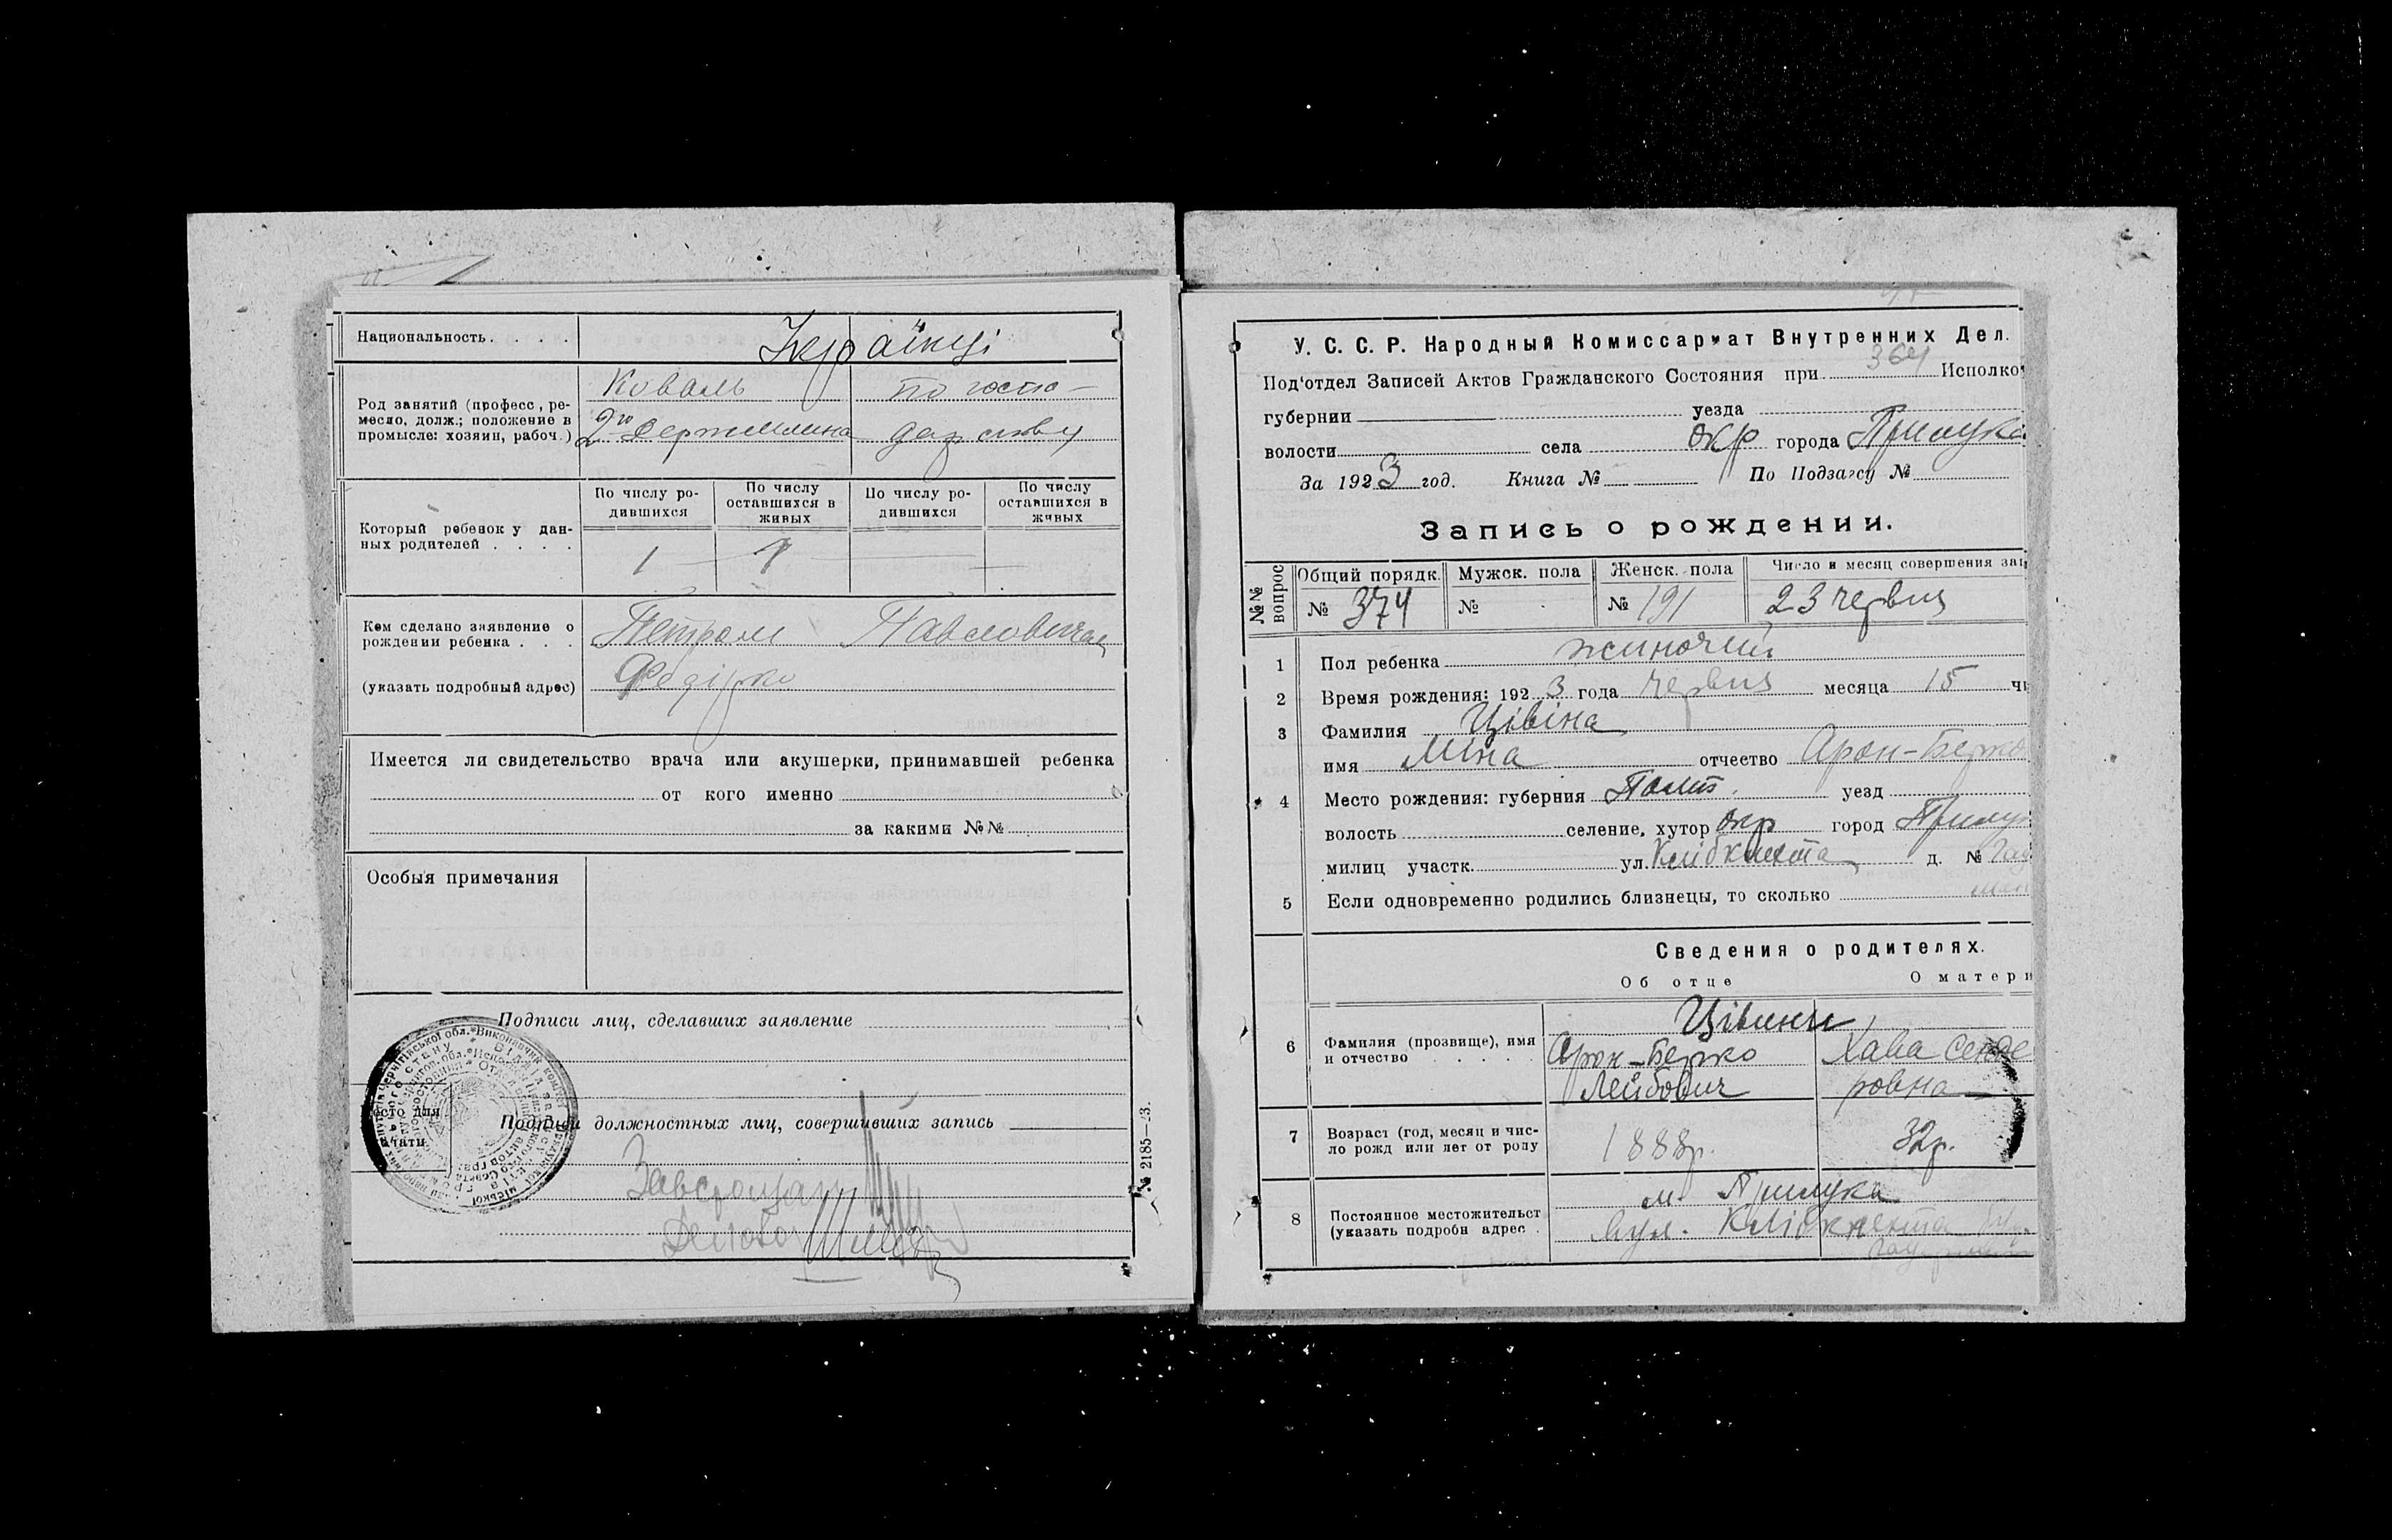 Национальность. . . . .
Українці
Род занятий (професс, ре-
месло, долж.; положение в
промысле: хозяин, рабоч.)
Коваль
по госпо-
2го Держмлина
дарству
Который ребенок у дан-
ных родителей . . . .
По числу ро-
дившихся
По числу
оставшихся в
живых
По числу ро-
дившихся
По числу
оставшихся в
живых
1
1
Кем сделано заявление о
рождении ребенка . . .
(указать подробный адрес)
Петром Павловичем
Федірко
Имеется ли свидетельство врача или акушерки, принимавшей ребенка
от кого именно
за какими №№
Особыя примечания
Подписи лиц, сделавших заявление
место для
печати
Подписи должностных лиц, совершивших запись
№ 2185—23.
У. С. С. Р. Народный Комиссариат Внутренних Дел.
364
Под'отдел Записей Актов Гражданского Состояния при Исполко
губернии уезда
волости села окр города Прилука
За 1923 год. Книга № По Подзагсу №
Запись о рождении.
№№ вопрос
Общий порядк. Мужск. пола Женск. пола Число и месяц совершения зап
№ 374 № № 191 23 червня
1 Пол ребенка жиночий
2 Время рождения: 1923 года червня месяца 15 чи
3 Фамилия Цівіна
имя Міна отчество Арон-Берко
4 Место рождения: губерния Полт. уезд
волость селение, хутор окр город Прилу
милиц участк. ул. Клібкнехта д. №
5 Если одновременно родились близнецы, то сколько
Сведения о родителях.
Об отце О матери
6 Фамилия (прозвище), имя
и отчество . . . . .
Цівини
Арон-Берко
Лейбович
Хава Сенде
ровна
7 Возраст (год, месяц и чис-
ло рожд или лет от роду
1888р.
32р.
8 Постоянное местожительст
(указать подробн адрес .
м. Прилука
вул. Клібкнехта